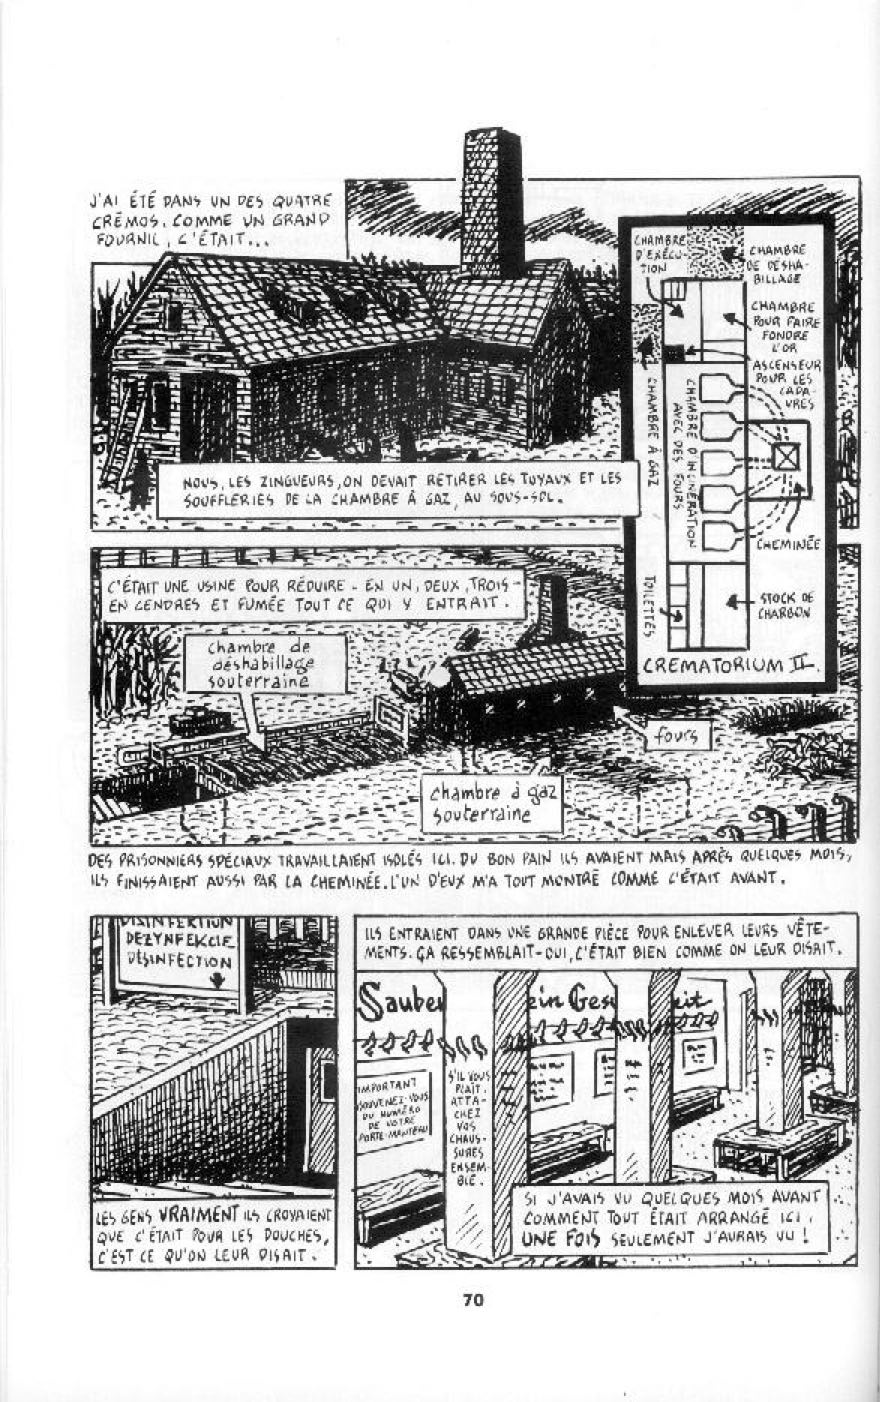 J'AI ÉTÉ DANS UN DES QUATRE
CRÉMOS. COMME UN GRAND
FOURNIL, C'ÉTAIT...
NOUS, LES ZINGUEURS, ON DEVAIT RETIRER LES TUYAUX ET LES
SOUFFLERIES DE LA CHAMBRE À GAZ, AU SOUS-SOL.
CHAMBRE
D'EXÉCU-
TION
CHAMBRE
DE DÉSHA-
BILLAGE
CHAMBRE
POUR FAIRE
FONDRE
L'OR
ASCENSEUR
POUR LES
CADA-
VRES
CHAMBRE À GAZ
CHAMBRE D'INCINÉRATION
AVEC DES FOURS
CHEMINÉE
TOILETTES
STOCK DE
CHARBON
CREMATORIUM II.
C'ÉTAIT UNE USINE POUR RÉDUIRE - EN UN, DEUX, TROIS -
EN CENDRES ET FUMÉE TOUT CE QUI Y ENTRAIT.
chambre de
déshabillage
souterraine
fours
chambre à gaz
souterraine
DES PRISONNIERS SPÉCIAUX TRAVAILLAIENT ISOLÉS ICI. DU BON PAIN ILS AVAIENT MAIS APRÈS QUELQUES MOIS,
ILS FINISSAIENT AUSSI PAR LA CHEMINÉE. L'UN D'EUX M'A TOUT MONTRÉ COMME C'ÉTAIT AVANT.
DISINFEKTION
DEZYNFEKCJE
DÉSINFECTION
LES GENS VRAIMENT ILS CROYAIENT
QUE C'ÉTAIT POUR LES DOUCHES,
C'EST CE QU'ON LEUR DISAIT.
ILS ENTRAIENT DANS UNE GRANDE PIÈCE POUR ENLEVER LEURS VÊTE-
MENTS. ÇA RESSEMBLAIT - OUI, C'ÉTAIT BIEN COMME ON LEUR DISAIT.
Saube ein Ges eit
IMPORTANT
SOUVENEZ-VOUS
DU NUMÉRO
DE VOTRE
PORTE-MANTEAU
S'IL VOUS
PLAÎT.
ATTA-
CHEZ
VOS
CHAUS-
SURES
ENSEM-
BLE.
SI J'AVAIS VU QUELQUES MOIS AVANT
COMMENT TOUT ÉTAIT ARRANGÉ ICI,
UNE FOIS SEULEMENT J'AURAIS VU !
70